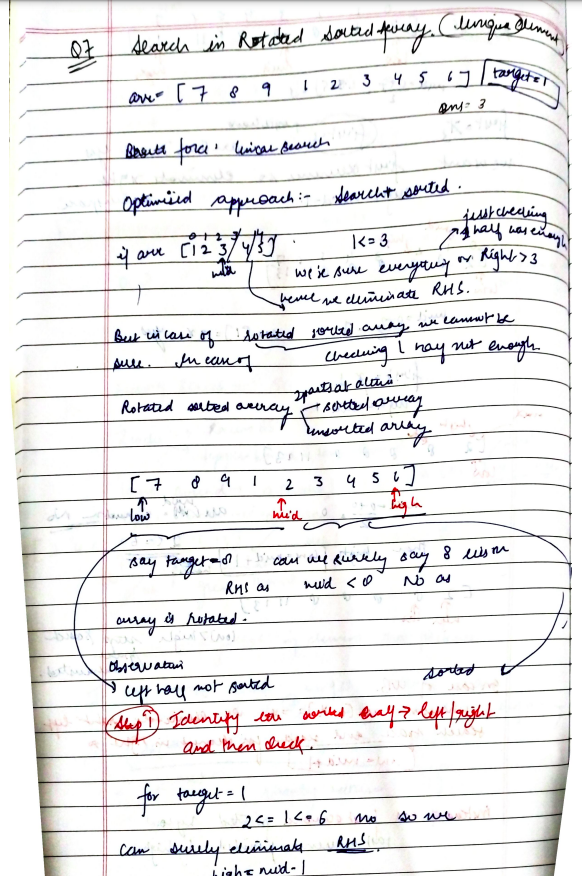 Q7 Search in Rotated Sorted Array. (Unique Element)
arr = [ 7 8 9 1 2 3 4 5 6 ] target = 1
ans = 3
Brute force: linear search
Optimised approach :- Search + sorted.
0 1 2 3 4
if arr [1 2 3 4 5] 1 <= 3
just checking
1 half was enough
mid
we're sure everything on Right > 3
hence we eliminate RHS.
But in case of rotated sorted array we cannot be
sure. In case of checking 1 half not enough.
2 parts
Rotated sorted array sorted array
unsorted array
[ 7 8 9 1 2 3 4 5 6 ]
low mid high
say target = 8 can we surely say 8 lies on
RHS as mid < 8 No as
array is rotated.
Observation
left half not sorted sorted
Step 1 Identify the sorted half → left/right
and then check.
for target = 1
2 <= 1 <= 6 no so we
can surely eliminate RHS.
high = mid - 1